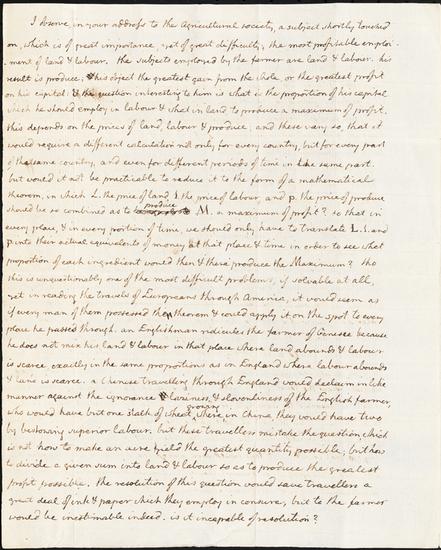 I observe in your address to the Agricultural society, a subject shortly touched
on, which is of great importance, yet of great difficulty, the most profitable employ-
ment of land & labour. the subjects employed by the farmer are land & labour. his
result is produce; his object the greatest gain from the whole, or the greatest profit
on his capital. & the question interesting to him is what is the proportion of his capital
which he should employ in labour & what in land to produce a maximum of profit.
this depends on the prices of land, labour & produce, and these vary so, that it
would require a different calculation not only for every country, but for every part
of the same country, and even for different periods of time in the same part.
but would it not be practicable to reduce it to the form of a mathematical
theorem, in which L. the price of land, l. the price of labour, and p. the price of produce
should be so combined as to produce M. a maximum of profit? so that in
every place, & in every portion of time, we should only have to translate L. l. and
p. into their actual equivalents of money at that place & time in order to see what
proportion of each ingredient would then & there produce the Maximum? tho
this is unquestionably one of the most difficult problems, if solvable at all,
yet in reading the travels of Europeans through America, it would seem as
if every man of them possessed the theorem & could apply it on the spot to every
place he passed through. an Englishman ridicules the farmer of Genesee because
he does not mix his land & labour in that place where land abounds & labour
is scarce exactly in the same proportions as in England where labour abounds
& land is scarce. a Chinese travelling through England would declaim in like
manner against the ignorance laziness, & slovenliness of the English farmer,
who would have but one stalk of wheat growing where in China, they would have two
by bestowing superior labour. but these travellers mistake the question, which
is not how to make an acre yield the greatest quantity possible; but how
to divide a given sum into land & labour so as to produce the greatest
profit possible. the resolution of this question would save travellers a
great deal of ink & paper which they employ in censure, but to the farmer
would be inestimable indeed. is it incapable of resolution?